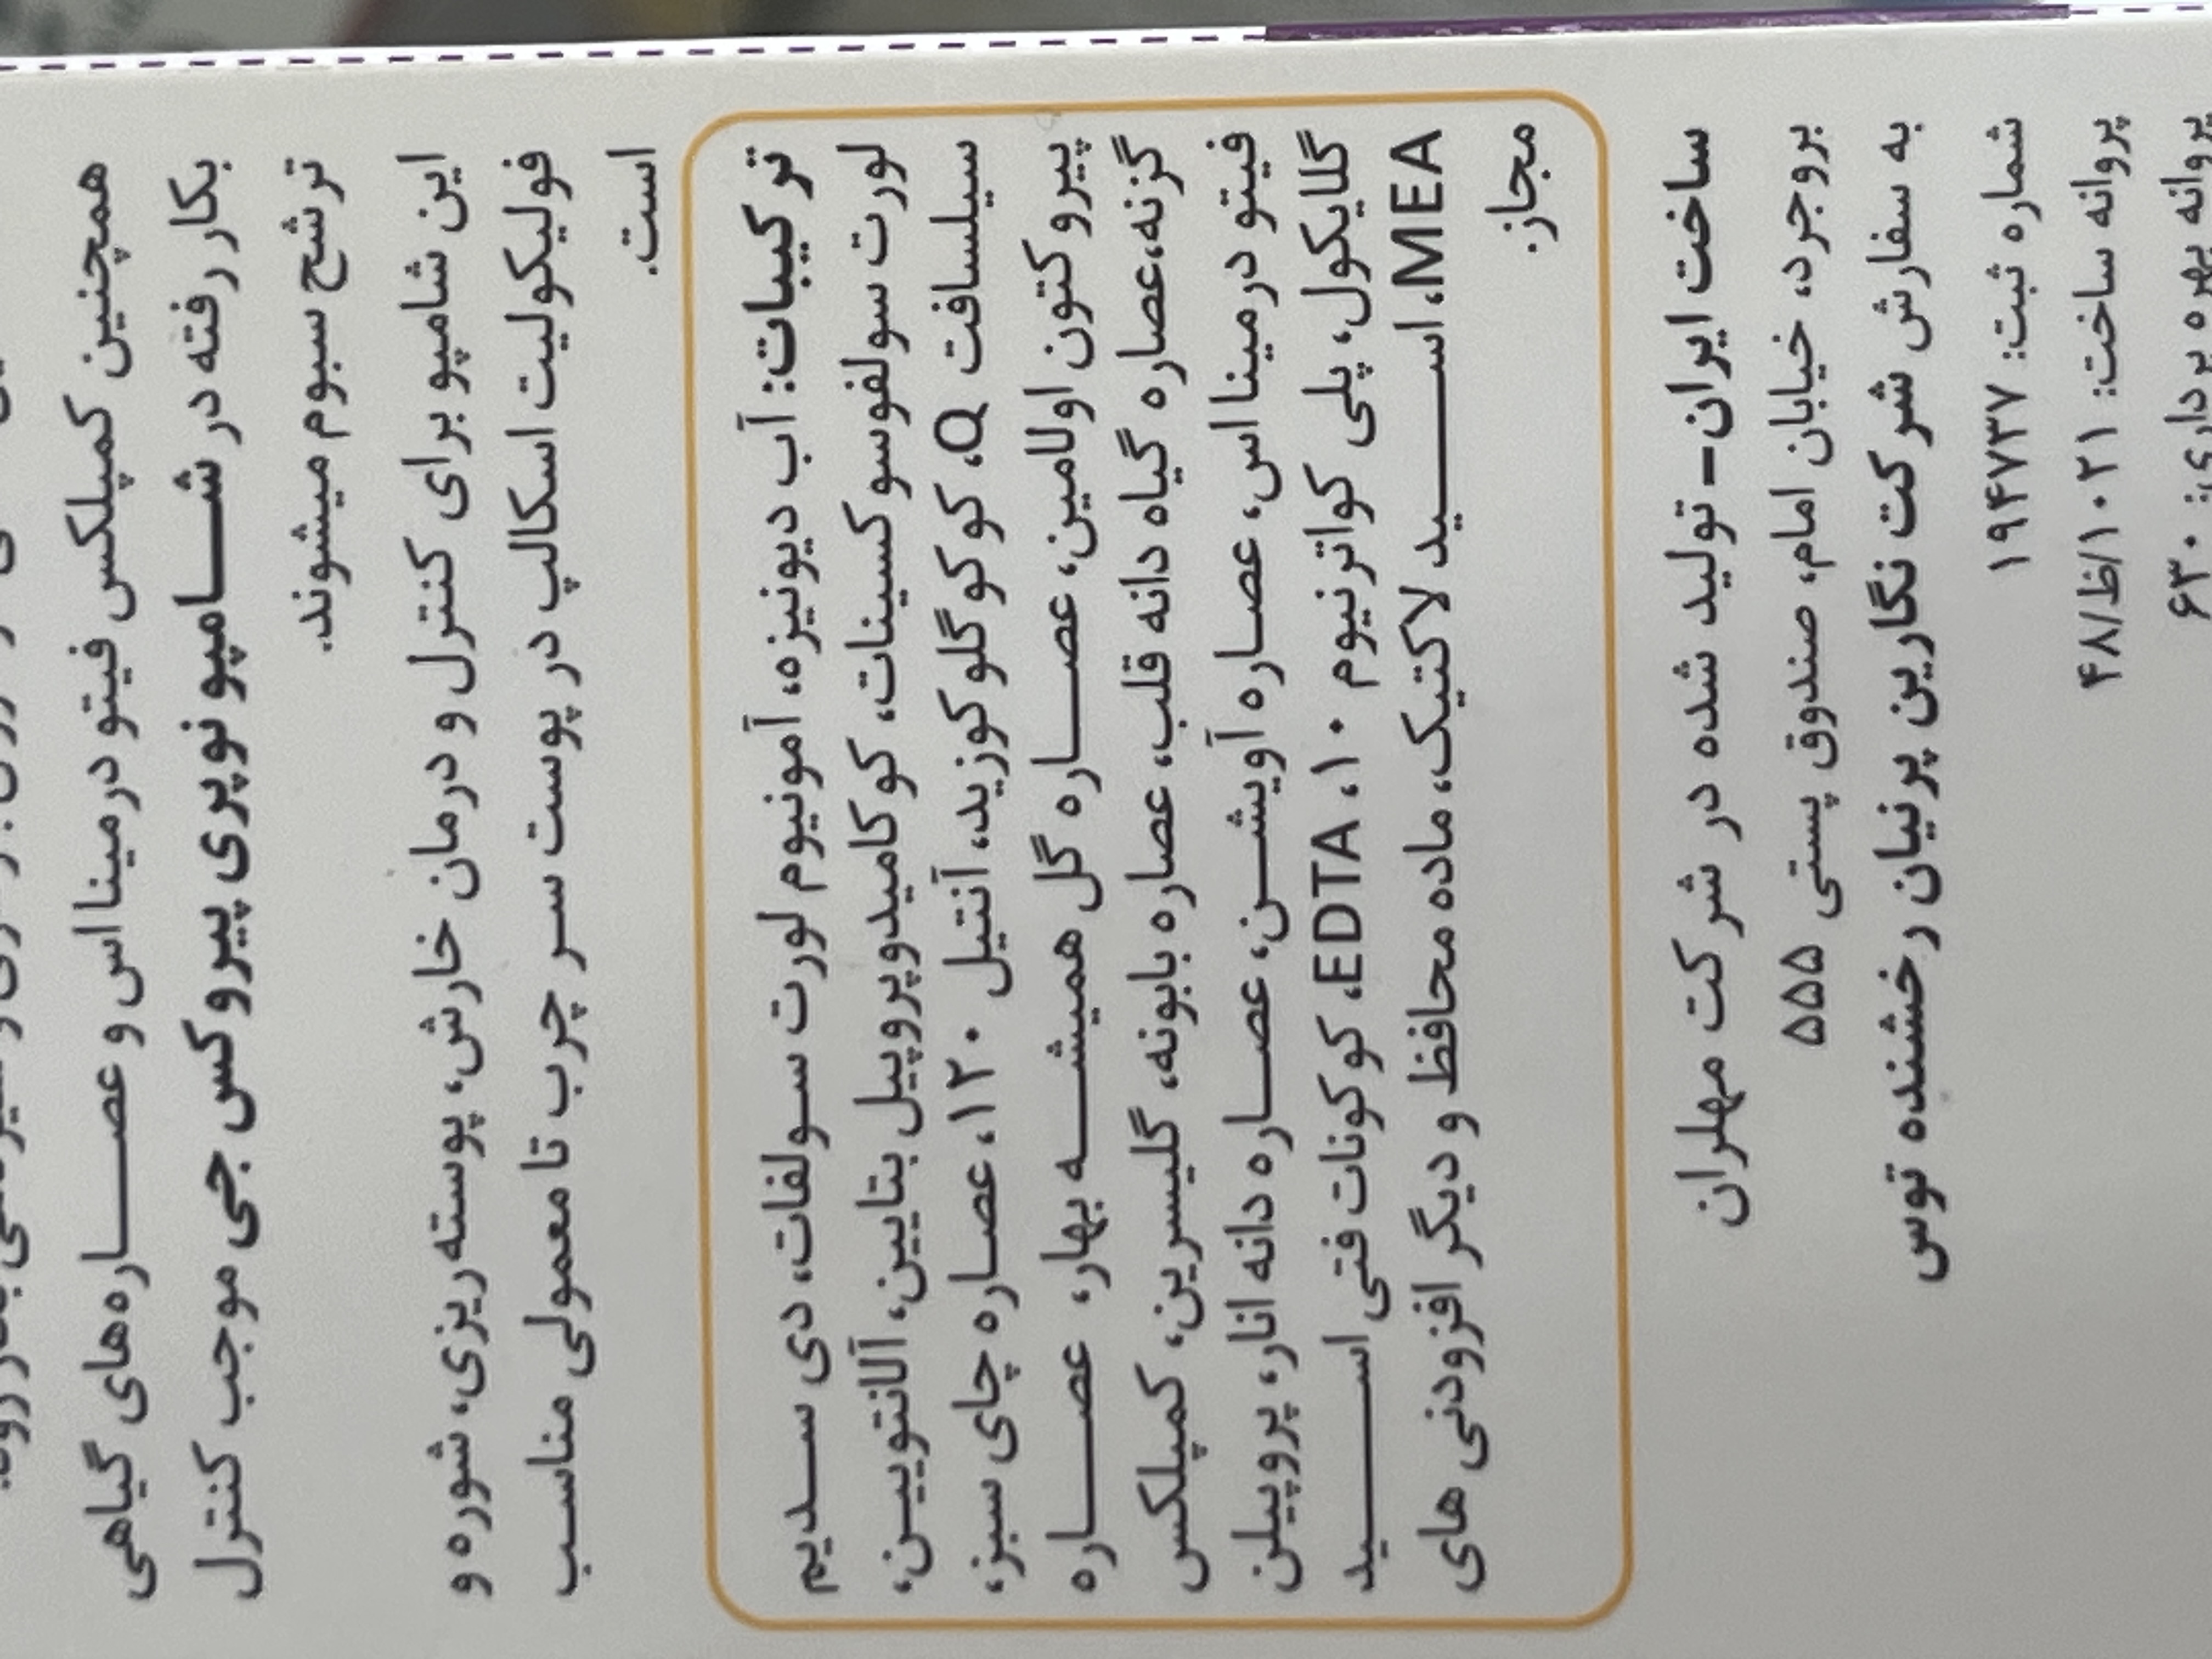 همچنین کمپلکس فیتو درمینا اس و عصاره‌های گیاهی
بکار رفته در شامپو نوپری پیروکس جی موجب کنترل
ترشح سبوم میشوند.
این شامپو برای کنترل و درمان خارش، پوسته‌ریزی، شوره و
فولیکولیت اسکالپ در پوست سر چرب تا معمولی مناسب
است.
ترکیبات: آب دیونیزه، آمونیوم لورت سولفات، دی سدیم
لورت سولفوسوکسینات، کوکامیدوپروپیل بتایین، آلانتویین،
سیلسافت Q، کوکوگلوکوزید، آنتیل ۱۲۰، عصاره چای سبز،
پیروکتون اولامین، عصاره گل همیشه بهار، عصاره
گزنه،عصاره گیاه دانه قلب، عصاره بابونه، گلیسرین، کمپلکس
فیتو درمینا اس، عصاره آویشن، عصاره دانه انار، پروپیلن
گلایکول، پلی کواترنیوم ۱۰، EDTA، کوکونات فتی اسید
MEA، اسید لاکتیک، ماده محافظ و دیگر افزودنی های
مجاز.
ساخت ایران- تولید شده در شرکت مهلران
بروجرد، خیابان امام، صندوق پستی ۵۵۵
به سفارش شرکت نگارین پرنیان رخشنده توس
شماره ثبت: ۱۹۴۷۳۷
پروانه ساخت: ۴۸/ظ/۱۰۲۱
پروانه بهره برداری: ۶۳۰